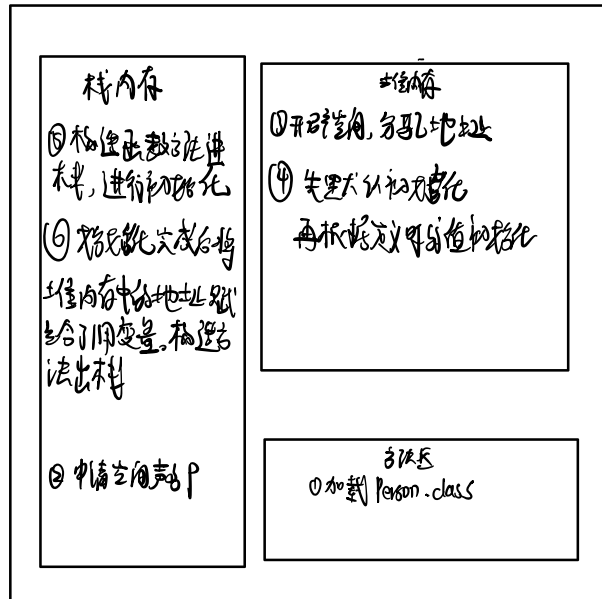 栈内存
⑤构造函数方法进
栈，进行初始化
⑥初始化完成后将
堆内存中的地址赋
给引用变量。构造方
法出栈
②申请空间声明P
堆内存
③开辟空间，分配地址
④先默认初始化
再根据定义时的值初始化
方法区
①加载Person.class